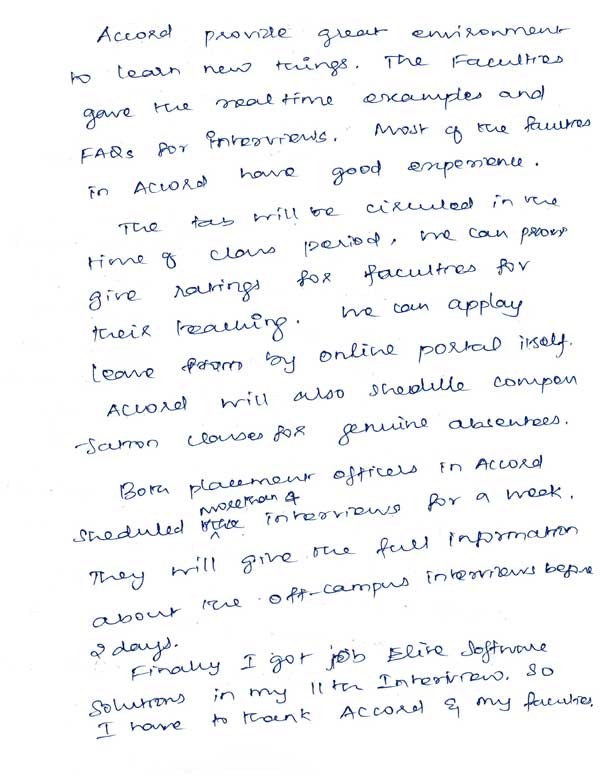 Accord provide great environment
to learn new things. The Faculties
gave the real time examples and
FAQs for interviews. Most of the faculties
in Accord have good experience.
The tab will be circuled in the
time of class period, we can prove
give ratings for faculties for
their teaching. We can applay
leave from by online portal itself.
Accord will also shedule compen
-sation classes for genuine absentees.
Both placement officers in Accord
more than 4
sheduled the interviews for a week.
They will give the full information
about the off-campus interviews before
2 days.
Finally I got job Elite Software
Solutions in my 11th Interview. So
I have to thank Accord & my faculties.